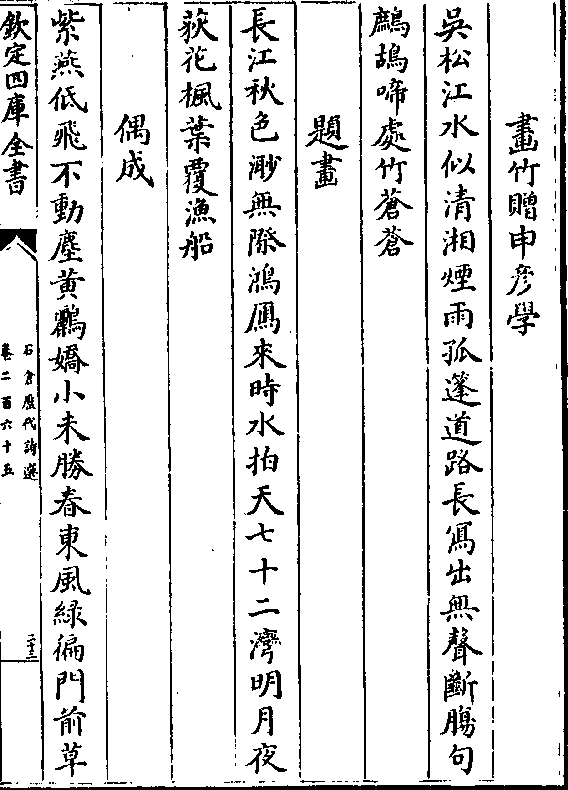 畫竹贈申彥學
吳松江水似清湘煙雨孤篷道路長寫出無聲斷腸句
鷓鴣啼處竹蒼蒼
題畫
長江秋色渺無際鴻鴈來時水拍天七十二灣明月夜
荻花楓葉覆漁船
偶成
紫燕低飛不動塵黃鸝嬌小未勝春東風綠徧門前草
欽定四庫全書
石倉歷代詩選
卷二百六十五
二十三